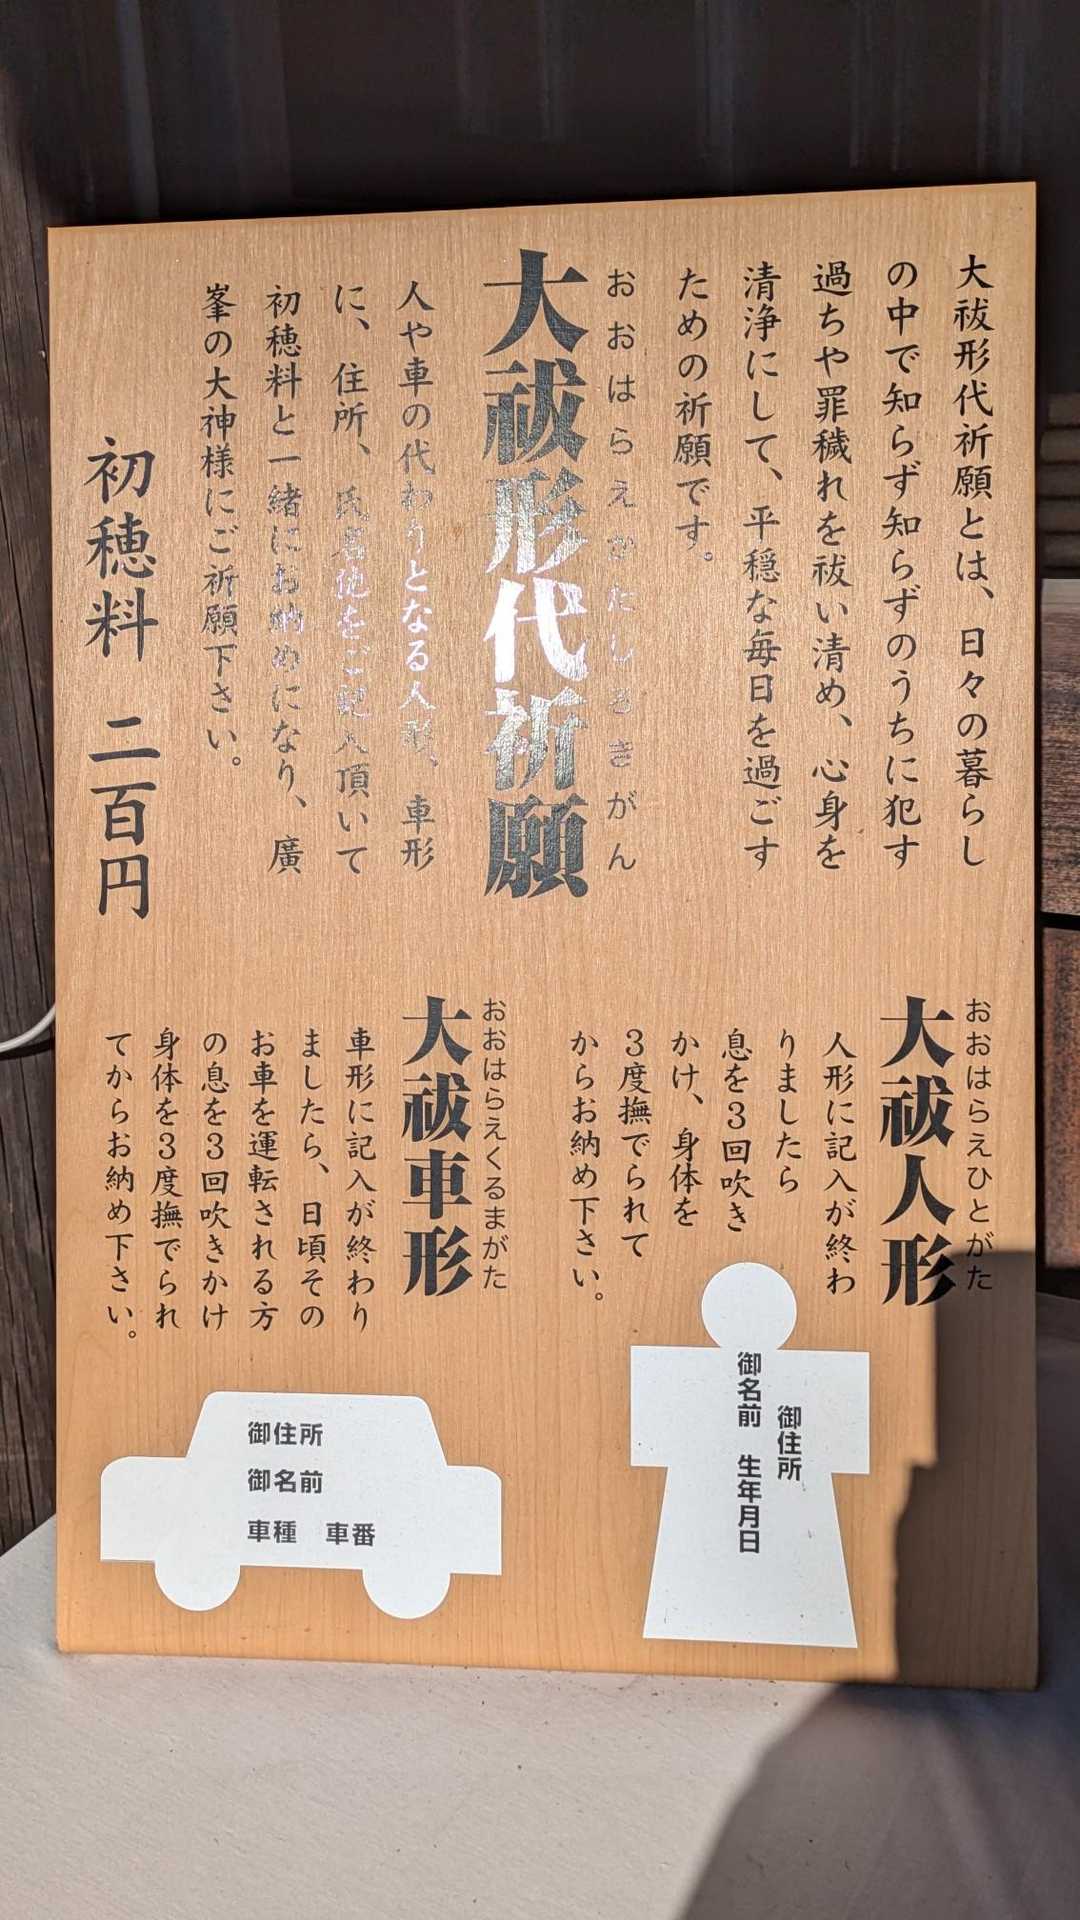 大祓形代祈願とは、日々の暮らし
の中で知らず知らずのうちに犯す
過ちや罪穢れを祓い清め、心身を
清浄にして、平穏な毎日を過ごす
ための祈願です。
おおはらえかたしろきがん
大祓形代祈願
人や車の代わりとなる人形、車形
に、住所、氏名他をご記入頂いて
初穂料と一緒にお納めになり、廣
峯の大神様にご祈願下さい。
初穂料 二百円
おおはらえひとがた
大祓人形
人形に記入が終わ
りましたら
息を3回吹き
かけ、身体を
3度撫でられて
からお納め下さい。
御住所
御名前 生年月日
おおはらえくるまがた
大祓車形
車形に記入が終わり
ましたら、日頃その
お車を運転される方
の息を3回吹きかけ
身体を3度撫でられ
てからお納め下さい。
御住所
御名前
車種 車番